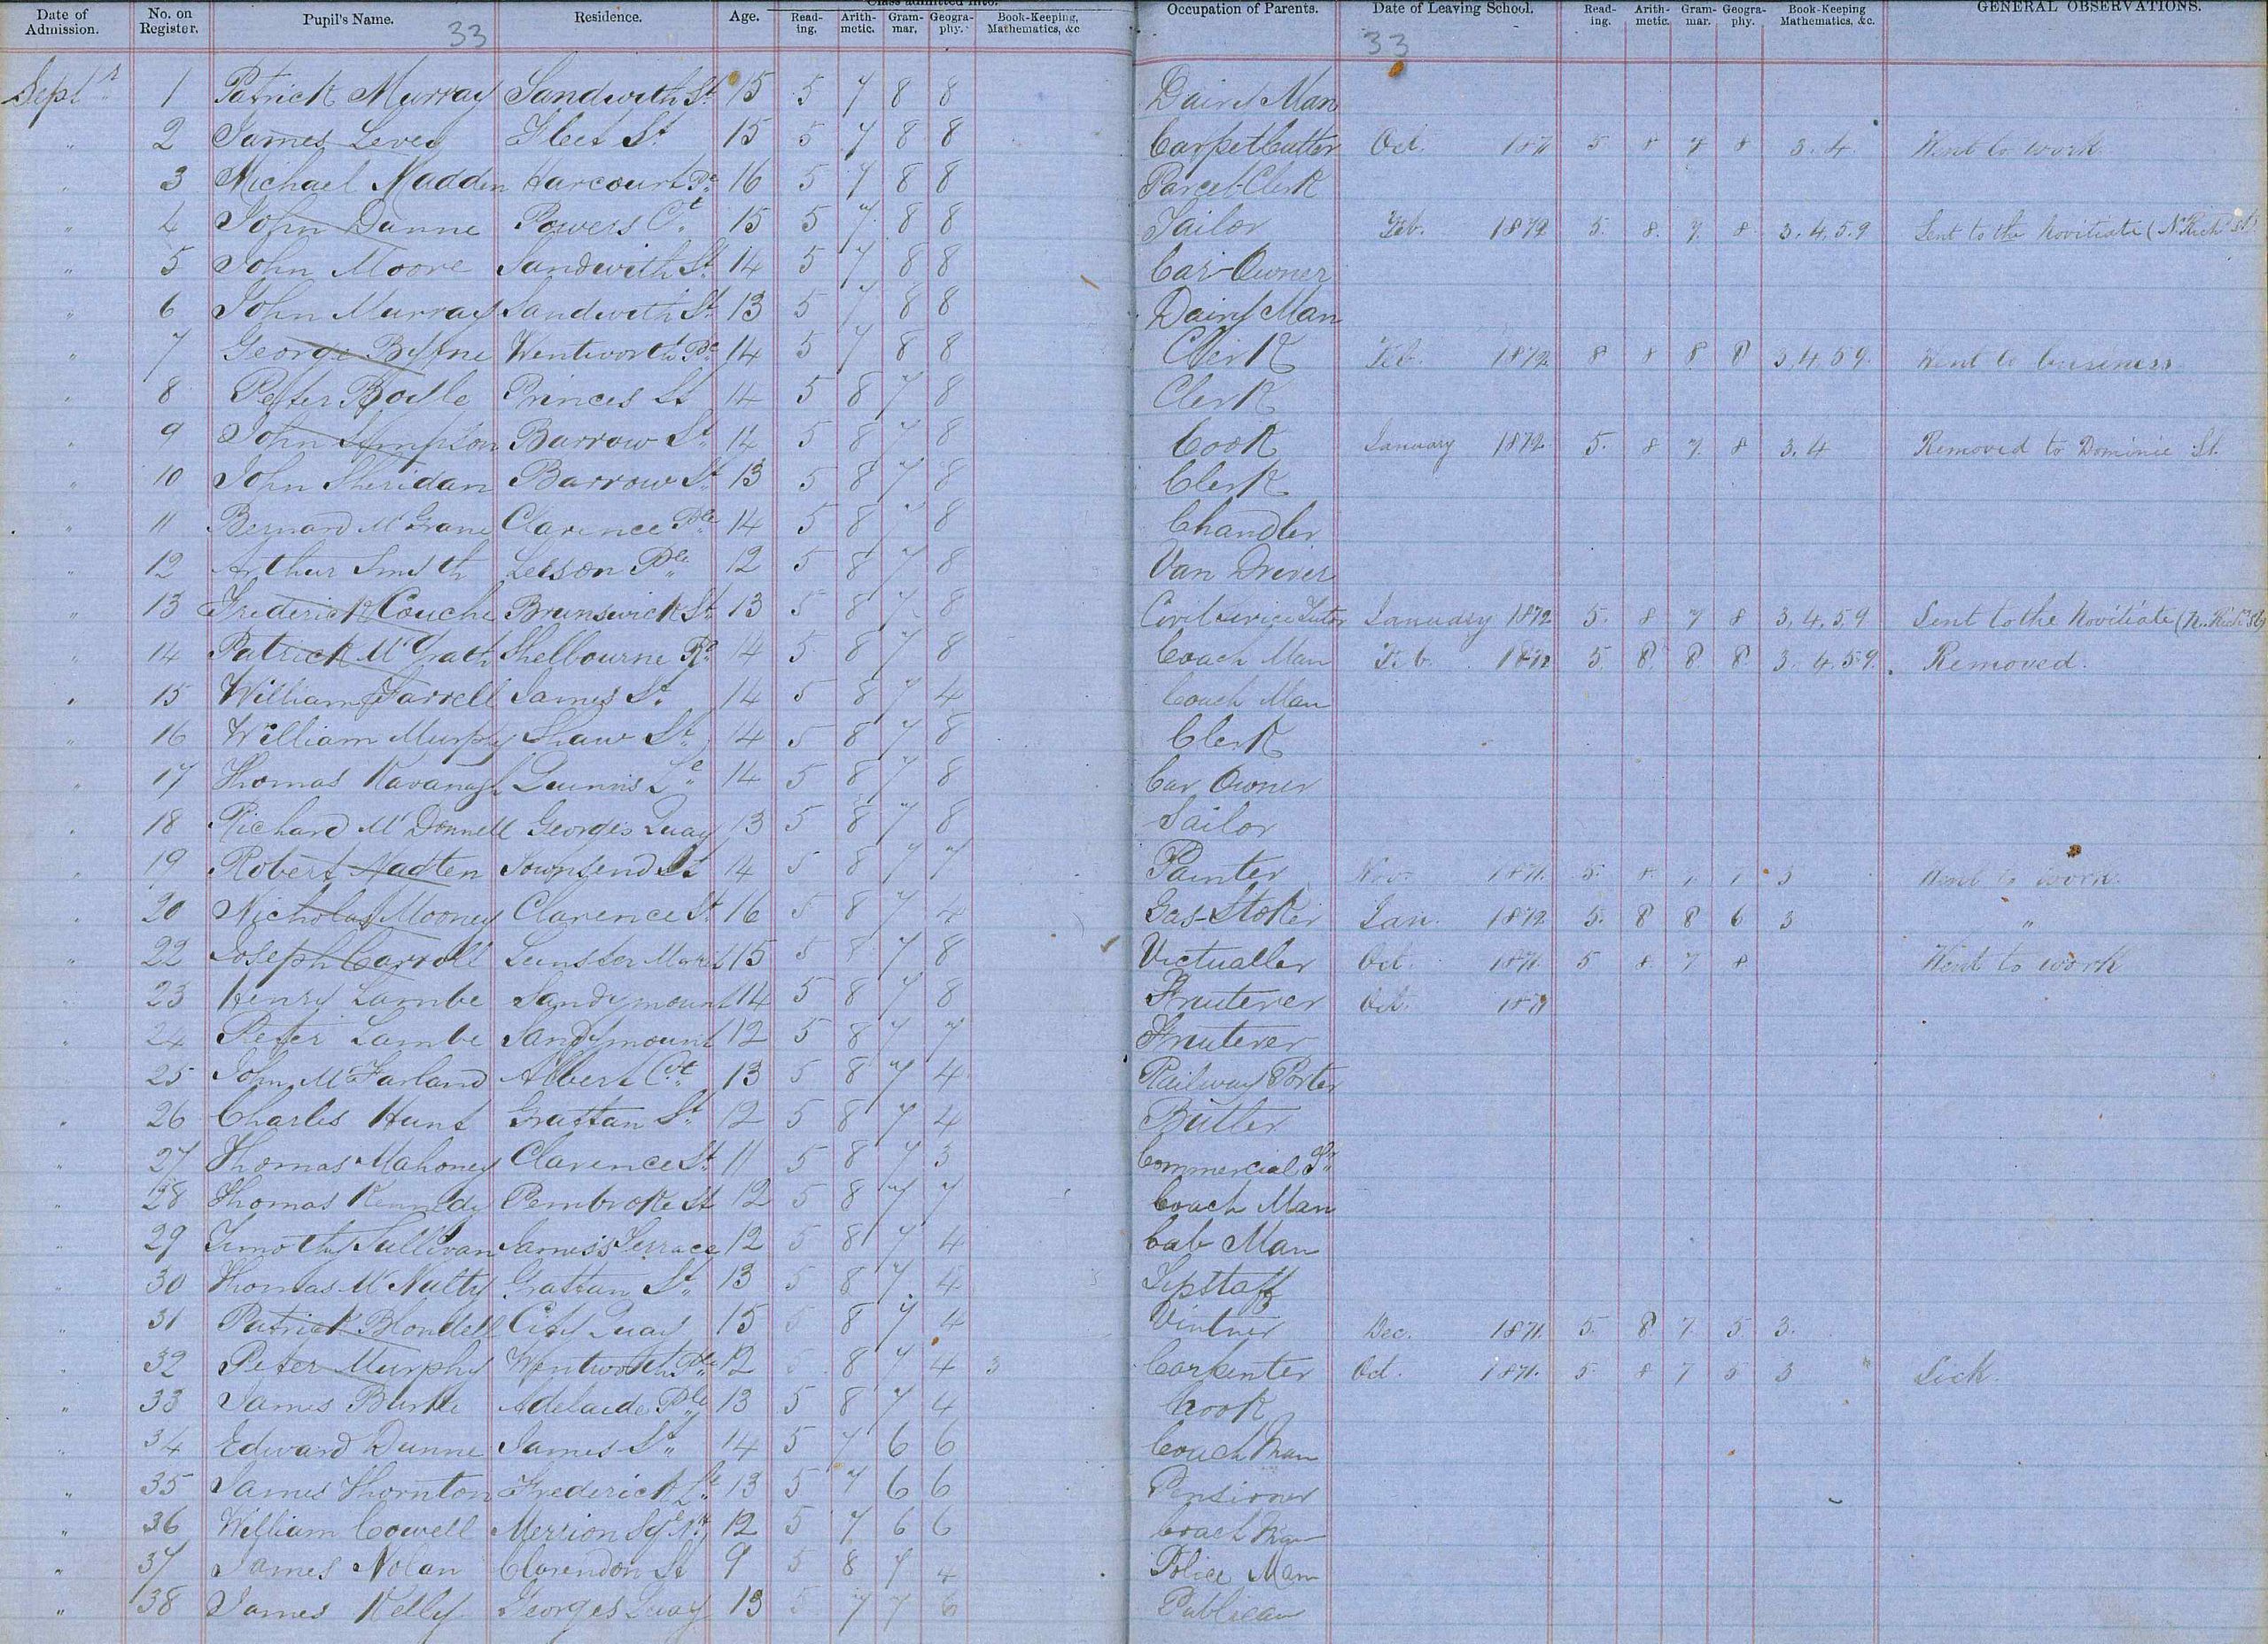 Date of Admission. No. on Register. Pupil's Name. Residence. Age. Class admitted into. Read-ing. Arith-metic. Gram-mar. Geogra-phy. Book-Keeping, Mathematics, &c Occupation of Parents. Date of Leaving School. Read-ing. Arith-metic. Gram-mar. Geogra-phy. Book-Keeping Mathematics, &c. GENERAL OBSERVATIONS.
33 33
Septr 1 Patrick Murray Sandwith St. 15 5 7 8 8 Dairy Man
" 2 James Levey Fleet St 15 5 7 8 8 Carpet Cutter Oct. 1871 5 8 7 8 3.4. Went to work
" 3 Michael Madden Harcourt Pe 16 5 7 8 8 Parcel-Clerk
" 4 John Dunne Powers Ct. 15 5 7 8 8 Tailor Feb. 1872 5. 8. 7. 8. 3.4.5.9 Sent to the Novitiate (N. Richd St.)
" 5 John Moore Sandwith St. 14 5 7 8 8 Car-Owner
" 6 John Murray Sandwith St 13 5 7 8 8 Dairy Man
" 7 George Byrne Wentworth Pe 14 5 7 8 8 Clerk Feb. 1872 8 8 8 8 3,4,5.9. Went to business
" 8 Peter Bodle Princes St 14 5 8 7 8 Clerk
" 9 John Sympson Barrow St. 14 5 8 7 8 Cook January 1872 5. 8 7. 8 3.4 Removed to Dominic St.
" 10 John Sheridan Barrow St. 13 5 8 7 8 Clerk
" 11 Bernard McGrane Clarence Ple 14 5 8 " 8 Chandler
" 12 Arthur Smith Leeson Ple. 12 5 8 7 8 Van Driver
" 13 Frederick Couche Brunswick St. 13 5 8 7 8 Civil Service Tutor January 1872 5. 8 7 8 3,4,5,9 Sent to the Novitiate (N. Richd St)
" 14 Patrick McGrath Shelbourne Rd 14 5 8 7 8 Coach Man Feb. 1872 5. 8. 8. 8. 3. 4.5.9. Removed.
" 15 William Farrell James St. 14 5 8 7 4 Coach Man
" 16 William Murphy Shaw St. 14 5 8 7 8 Clerk
" 17 Thomas Kavanagh Quinn's Le 14 5 8 7 8 Car Owner
" 18 Richard McDonnell Georges Quay 13 5 8 7 8 Sailor
" 19 Robert Townsend St 14 5 8 7 7 Painter Nov. 1871. 5. 8 7 7 3 Went to work.
" 20 Nicholas Mooney Clarence St 16 5 8 7 4 Gas-Stoker Jan. 1872 5. 8 8 6 3 "
" 22 Joseph Carroll Leinster Market 15 5 8 7 8 Victualler Oct. 1871. 5 8 7 8 Went to work
" 23 Henry Lambe Sandymount 14 5 8 7 8 Fruiterer Oct. 1871
" 24 Peter Lambe Sandymount 12 5 8 7 7 Fruiterer
25 John McFarland Albert Ct. 13 5 8 7 4 Railway Porter
" 26 Charles Hunt Grattan St. 12 5 8 7 4 Butler
" 27 Thomas Mahoney Clarence St. 11 5 8 7 3 Commercial Tr.
" 28 Thomas Kennedy Pembroke St 12 5 8 7 7 Coach Man
" 29 Timothy Sullivan James's Terrace 12 5 8 7 4 Cab Man
" 30 Thomas McNulty Grattan St. 13 5 8 7 4 Tipstaff
" 31 Patrick Blondell City Quay 15 5 8 7 4 Vintner Dec. 1871. 5. 8 7. 5 3.
" 32 Peter Murphy Wentworth Ple 12 5 8 7 4 3 Carpenter Oct. 1871. 5. 8 7 5 3 " Sick.
" 33 James Burke Adelaide Ple 13 5 8 7 4 Cook
" 34 Edward Dunne James St. 14 5 7 6 6 Coach Man
" 35 James Thornton Frederick St. 13 5 7 6 6 Pensioner
" 36 William Cowell Merrion Sqe Nh 12 5 7 6 6 Coach Man
" 37 James Nolan Clarendon St 9 5 8 7 4 Police Man
" 38 James Kelly Georges Quay 13 5 7 7 6 Publican